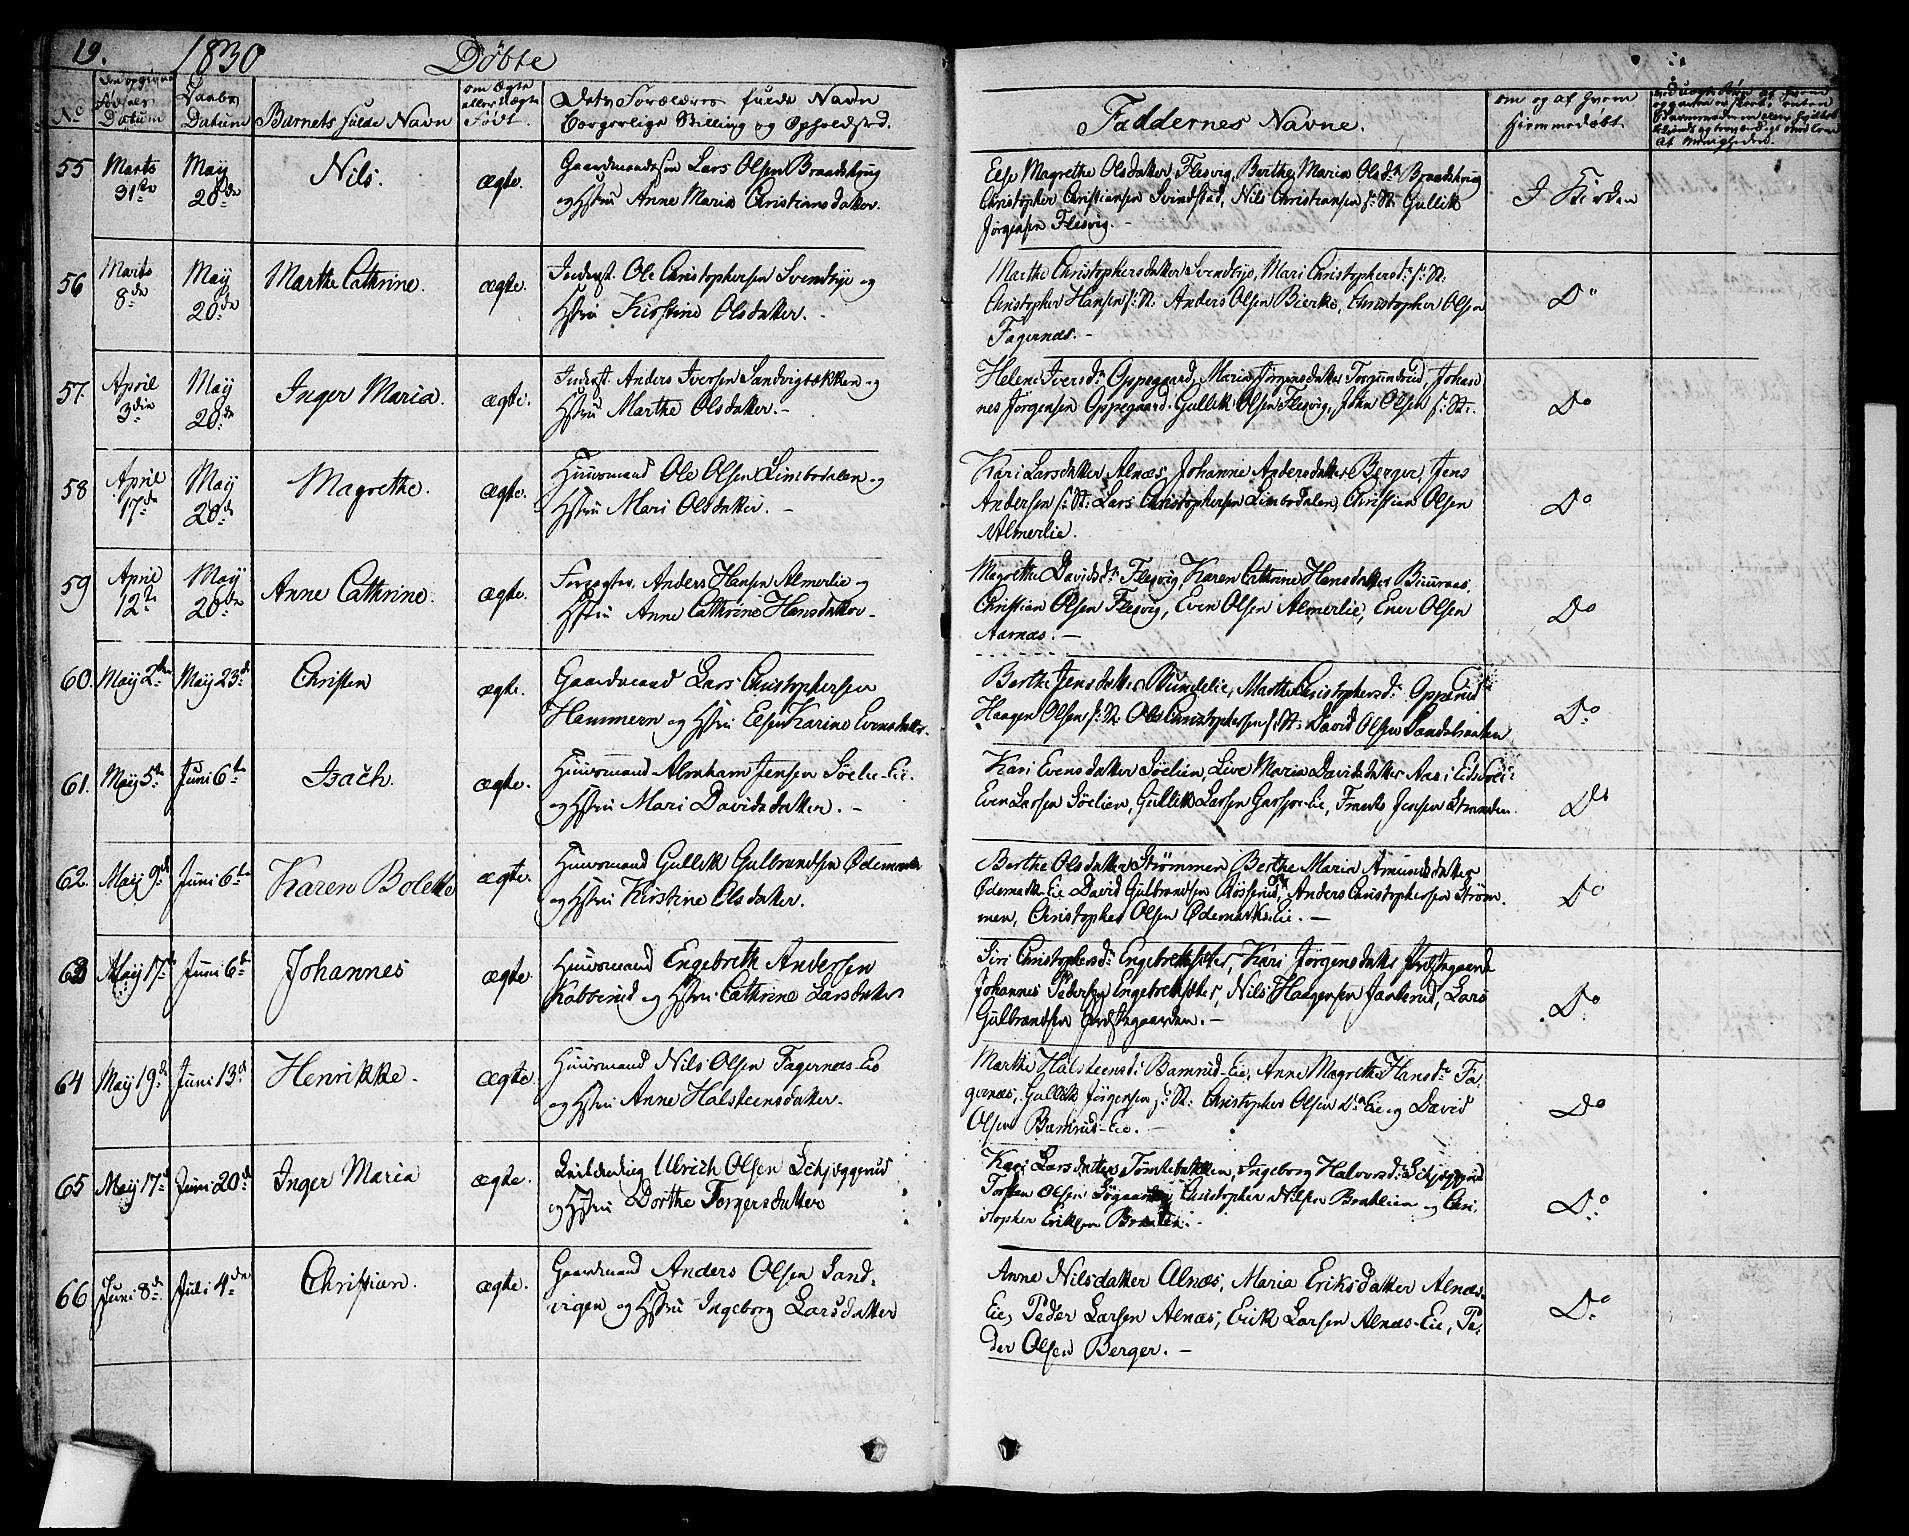 19. 1830 Døbte
No
Daabs Datum
Barnets fulde Navn
om Ægte eller Uægte Født.
Dets Forældres fulde Navn
borgerlige Stilling og Opholdsted.
Faddernes Navne.
om og af hvem
Hjemmedøbt.
55 Marts 31te May 20de Nils. ægte.
Gaardmandsøn Lars Olsen Braadskrug
og Hstru Anne Maria Christiansdatter.
Else Magrethe Olsdatter Flesvig, Berthe Maria Olsdr Braadskrug
Christopher Christiansen Svindstad, Nils Christiansen s: St: Gullik
Jørgensen Flesvig. -
I Kirken
56 Marts 8de May 20de Marthe Cathrine. ægte.
Inderst. Ole Christophersen Svendbye og
Hstru Kirstine Olsdatter. -
Marthe Christophersdatter Svendbye, Mari Christophersdr s: St:
Christopher Hansen s: St: Anders Olsen Bierke, Christopher Olsen
Fagernæs. -
Do
57. April 3die May 20de Inger Maria. ægte.
Inderst. Anders Iversen Sandvigbakken og
Hstru Marthe Olsdatter. -
Helene Iversdr Oppegaard, Maria Jørgensdatter Torgundrud, Johan
nes Jørgensen Oppegaard, Gullik Olsen Flesvig, John Olsen s: St:.
Do
58 April 17de May 20de Magrethe. ægte.
Huusmand Ole Olsen Limbodalen og
Hstru Mari Olsdatter. -
Kari Larsdatter Alnæs, Johanne Andersdatter Berger, Jens
Andersen s: St: Lars Christophersen Limbodalen, Christian Olsen
Almerlie.
Do
59 April 12te May 20de Anne Cathrine. ægte.
Forpagter Anders Hansen Almerlie og
Hstru Anne Cathrine Hansdatter -
Magrethe Davidsdr Flesvig, Karen Cathrine Hansdatter
Christian Olsen Flesvig, Even Olsen Almerlie, Ener Olsen
Aarnæs. -
Do
60. May 2den May 23de Christen ægte.
Gaardmand Lars Christophersen
Hammern og Hstru Elsen Karine Evensdatter.
Berthe Jensdatter Rundelie, Marthe Christophersdr Opperud
Haagen Olsen s: St: Ole Christophersen s: St: David Olsen Sandsbraaten
Do
61. May 5te Juni 6te Isach. ægte.
Huusmand Abraham Jensen Søelie-Eie.
og Hstru Mari Davidsdatter. -
Kari Evensdatter Søelien, Live Maria Davidsdatter Aas i Eidsvol
Even Larsen Søelien, Gullik Larsen Eie, Frants Jensen Stranden.
Do
62. May 9de Juni 6te Karen Bolette ægte.
Huusmand Gullik Gulbrandsen Ødemark
og Hstru Kirstine Olsdatter.
Berthe Olsdatter Strømmen, Berthe Maria Amundsdatter
Ødemark-Eie David Gulbrandsen Røsserud, Anders Christophersen Strøm-
men, Christopher Olsen Ødemarks-Eie. -
Do
63 May 17de Juni 6te Johannes ægte.
Huusmand Engebreth Andersen
Kabberud og Hstru Cathrine Larsdatter
Siri Christophersdr Engebrethsæter, Kari Jørgensdatter Præstegaarde
Johannes Pedersen Engebrethsæter, Nils Haagensen Janberud, Lars
Gulbrandsen Præstegaarden. -
Do
64 May 19de Juni 13de Henrikke. ægte.
Huusmand Nils Olsen Fagernæs-Eie
og Hstru Anne Halsteensdatter.
Marthe Halsteensdr Bamrud-Eie, Anne Magrethe Hansdr Fa-
gernæs, Gullik Jørgensen s: St: Christopher Olsen Do Eie og David
Olsen Bamrud-Eie. -
Do
65 May 17de Juni 20de Inger Maria ægte.
Ulrich Olsen Schjøggerud
og Hstru Dorthe Torgersdatter
Kari Larsdatter Tømtebakken, Ingeborg Halvorsdr Schjøggerud
Torsten Olsen Søgaarden, Christopher Nilsen Brahlien og Chri-
stopher Eriksen
Do
66 Juni 8de Juli 4de Christian. ægte.
Gaardmand Anders Olsen Sand-
vigen og Hstru Ingeborg Larsdatter
Anne Nilsdatter Alnæs, Maria Eriksdatter Alnæs-
Eie, Peder Larsen Alnæs, Erik Larsen Alnæs-Eie, Pe-
der Olsen Berger. -
Do